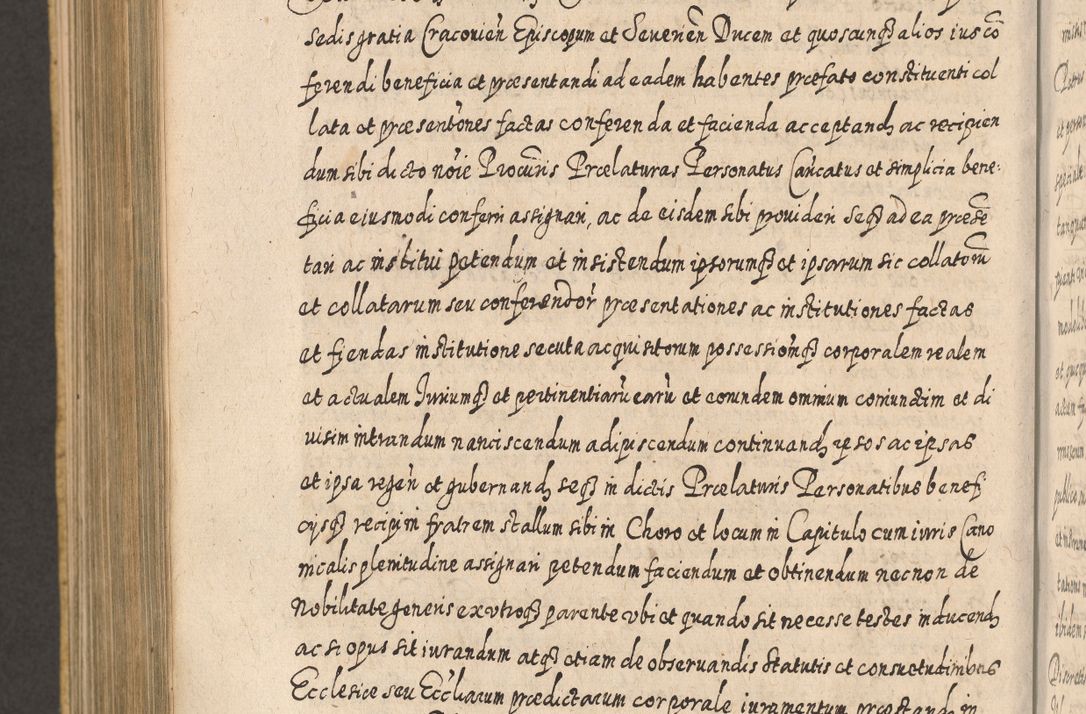 Sedis gratia Cracovień Episcopum et Severień Ducem et quoscunqȝ alios ius cō
ferendi beneficia et præsentandi ad eadem habentes præfato constituenti col
lata et præsentōnes factas conferenda et facienda acceptandȝ ac recipien
dum sibi dicto nōie Procurīs Prælaturas Personatus Cańcatus et simplicia bene-
ficia eiusmodi conferri assignari, ac de eisdem sibi provideri seqȝ ad ea præsē
tari ac institui petendum et insistendum ipsorumqȝ et ipsarum sic collatorū
et collatarum seu conferendor̃ præsentationes ac institutiones factas
et fiendas institutione secuta acquisitorum possessiōmqȝ corporalem realem
et actualem Iuriumqȝ et pertinentiarū earū et eorundem omnium coniunctim et di
uisim intrandum nanciscendum adipiscendum continuandȝ ipsos ac ipsas
et ipsa regeń et gubernandȝ seqȝ in dictis Prælaturis Personatibus benefi
cijsqȝ recipi in fratrem stallum sibi in Choro et locum in Capitulo cum iuris Cano
nicalis plenitudine assignari petendum faciendum et obtinendum necnon de
Nobilitate generis ex vtroqȝ parente vbi et quando sit necesse testes inducendȝ
ac si opus sit iurandum atqȝ etiam de obseruandis statutis et consuetudinibus
Ecclesiæ seu Eccl̃iarum prædictarum corporale iuramentum præstandȝ in